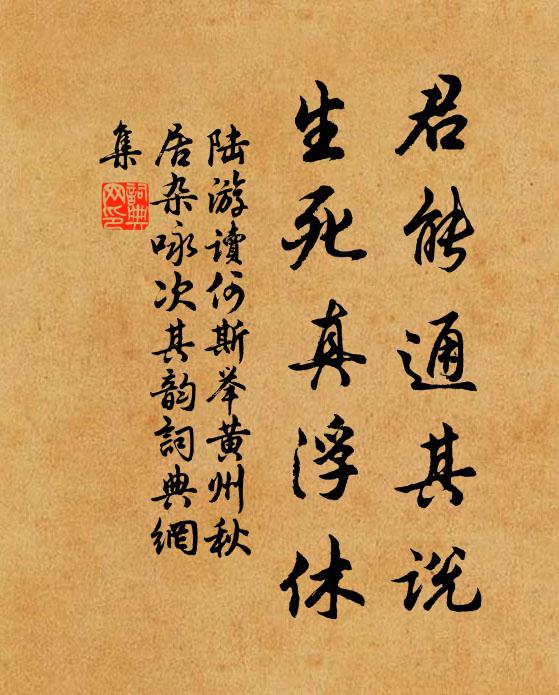 君能通其说
生死真浮休
陆游读何斯举黄州秋
居杂咏次其韵词典網
集
詞典
网印